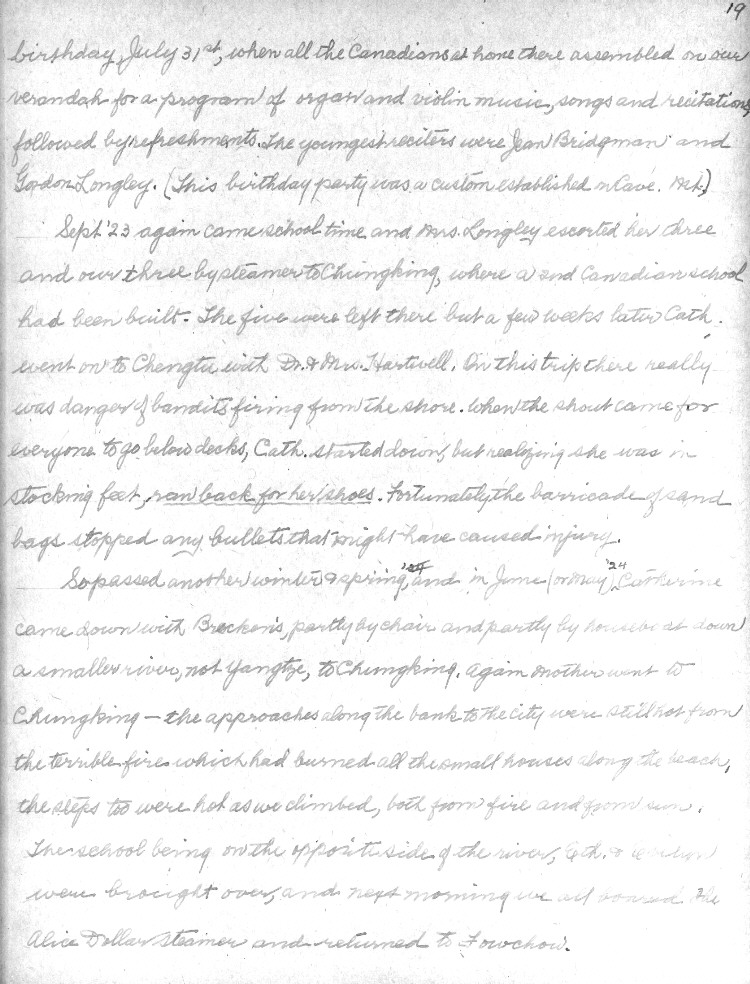 19
birthday, July 31st, when all the Canadians at home there assembled on our
verandah for a program of organ and violin music, songs and recitations,
followed by refreshments. The youngest reciters were Jean Bridgman and
Gordon Longley. (This birthday party was a custom established in Cave. Mt.)
Sept '23 again came school time and Mrs. Longley escorted her three
and our three by steamer to Chungking, where a 2nd Canadian school
had been built. The five were left there but a few weeks later Cath.
went on to Chengtu with Dr. & Mrs. Hartwell. On this trip there really
was danger of bandits firing from the shore. When the shout came for
everyone to go below decks, Cath. started down, but realizing she was in
stocking feet, ran back for her shoes. Fortunately the barricade of sand
bags stopped any bullets that might have caused injury.
So passed another winter & spring '24, and in June (or May) '24 Catherine
came down with Breckon's, partly by chair and partly by houseboat down
a smaller river, not Yangtze, to Chungking. Again Mother went to
Chungking – the approaches along the bank to the city were still hot from
the terrible fire which had burned all the small houses along the beach,
the steps too were hot as we climbed, both from fire and from sun.
The school being on the opposite side of the river, Cath. &
were brought over, and next morning we all boarded the
Alice Dollar steamer and returned to Fowchow.